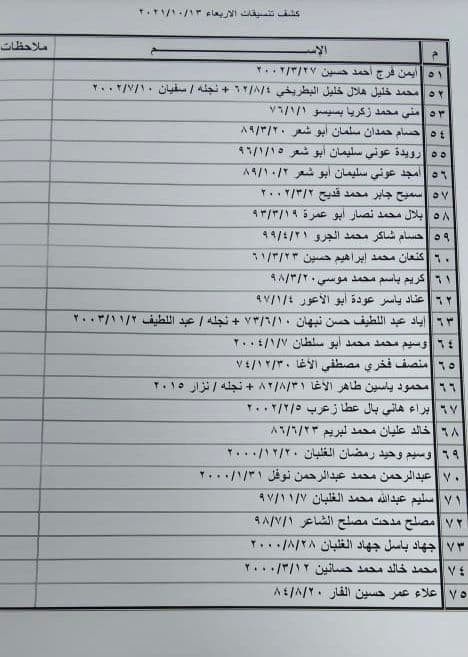 كشف تنسيقات الاربعاء ٢٠٢١/١٠/١٣
م الإســـــــم ملاحظات
٥١ أيمن فرج أحمد حسين ٢٠٠٢/٣/٢٧
٥٢ محمد خليل هلال خليل البطريخي ٦٢/٨/٤ + نجله / سفيان ٢٠٠٢/٧/١٠
٥٣ مني محمد زكريا بسيسو ٧٦/١/١
٥٤ حسام حمدان سلمان أبو شعر ٨٩/٣/٢٠
٥٥ رويدة عوني سليمان أبو شعر ٩٦/١/١٥
٥٦ أمجد عوني سليمان أبو شعر ٨٩/١٠/٢
٥٧ سميح جابر محمد قديح ٢٠٠٢/٣/٢
٥٨ بلال محمد نصار أبو عمرة ٩٣/٣/١٩
٥٩ حسام شاكر محمد الجرو ٩٩/٤/٢١
٦٠ كنعان محمد إبراهيم حسين ٦١/٣/٢٣
٦١ كريم باسم محمد موسي ٩٨/٣/٢٠
٦٢ عناد ياسر عودة أبو الأعور ٩٧/١/٤
٦٣ إياد عبد اللطيف حسن نبهان ٧٣/٦/١٠ + نجله / عبد اللطيف ٢٠٠٣/١١/٢
٦٤ وسيم محمد محمد أبو سلطان ٢٠٠٤/١/٧
٦٥ منصف فخري مصطفي الأغا ٧٤/١٢/٣٠
٦٦ محمود ياسين طاهر الأغا ٨٢/٨/٣١ + نجله / نزار ٢٠١٥
٦٧ براء هاني بال عطا زعرب ٢٠٠٢/٢/٥
٦٨ خالد عليان محمد لبريم ٨٦/٦/٢٣
٦٩ وسيم وحيد رمضان الغلبان ٢٠٠٠/١٢/٢٠
٧٠ عبدالرحمن محمد عبدالرحمن نوفل ٢٠٠٠/١/٣١
٧١ سليم عبدالله محمد الغلبان ٩٧/١١/٧
٧٢ مصلح مدحت مصلح الشاعر ٩٨/٧/١
٧٣ جهاد باسل جهاد الغلبان ٢٠٠٠/٨/٢٨
٧٤ محمد خالد محمد حسانين ٢٠٠٠/٣/١٢
٧٥ علاء عمر حسين الفار ٨٤/٨/٢٠